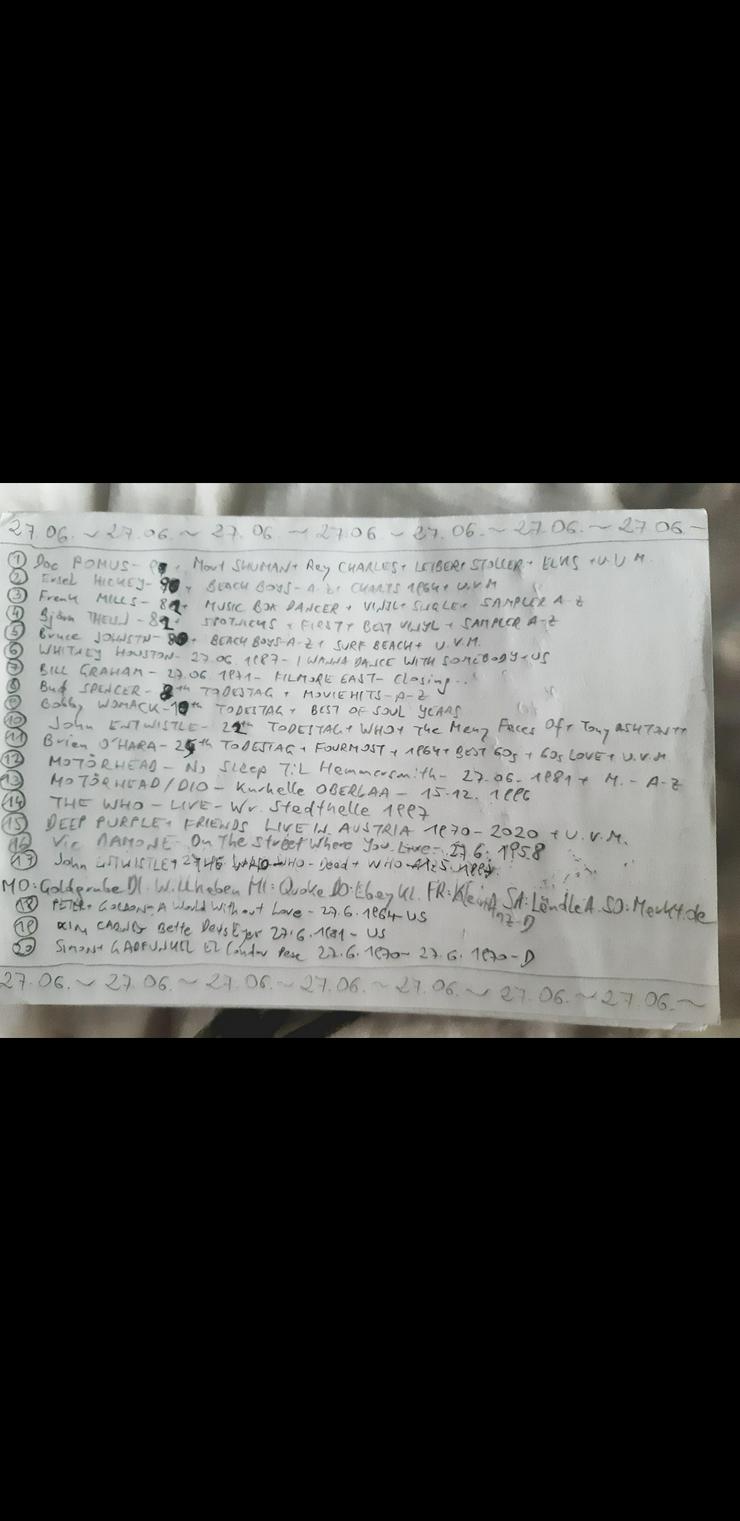 27.06. ~ 27.06. ~ 27.06. ~ 27.06. ~ 27.06. ~ 27.06. ~ 27.06. ~
① Doc POMUS - + Mort SHUMAN + Ray CHARLES + LEIBER + STOLLER + ELVIS + U.V.M.
② Ersel HICKEY - 90 + BEACH BOYS - A-Z + CHARTS 1964 + U.V.M
③ Frank MILLS - 82 + MUSIC BOX DANCER + VINYL + SINGLE + SAMPLER A-Z
④ Björn THELIN - 82 + SPOTNICKS + FIRST + BEST VINYL + SAMPLER A-Z
⑤ Bruce JOHNSTN - 80 + BEACH BOYS - A-Z + SURF BEACH + U.V.M.
⑥ WHITNEY HOUSTON - 27.06.1987 - I WANNA DANCE WITH SOMEBODY - US
⑦ BILL GRAHAM - 27.06.1971 - FILMORE EAST - Closing...
⑧ Bud SPENCER - 8th TODESTAG + MOVIE HITS - A-Z
⑨ Bobby WOMACK - 10th TODESTAG + BEST OF SOUL YEARS
⑩ John ENTWISTLE - 22th TODESTAG + WHO + The Many Faces Of + Tony ASHTON ++
⑪ Brian O'HARA - 25th TODESTAG + FOURMOST + 1964 + BEST 60s + 60s LOVE + U.V.M
⑫ MOTÖRHEAD - No Sleep Til Hammersmith - 27.06.1981 + M. - A-Z
⑬ MOTÖRHEAD / DIO - Kurhalle OBERLAA - 15.12.1996
⑭ THE WHO - LIVE - Wr. Stadthalle 1997
⑮ DEEP PURPLE + FRIENDS LIVE IN AUSTRIA 1970 - 2020 + U.V.M.
⑯ Vic DAMONE - On The Street Where You Live - 27.6.1958
⑰ John ENTWISTLE + WHO - Dead + WHO
MO: Goldgrube DI: Willhaben MI: Quoke DO: Ebay Kl. FR: Klein Anz-D SA: Ländle A. SO: Markt.de
⑱ PETER + GORDON - A World Without Love - 27.6.1964 - US
⑲ Kim CARNES Bette Davis Eyes 27.6.1981 - US
⑳ Simon + GARFUNKEL El Condor Pasa 27.6.1970 - 27.6.1970 - D
27.06. ~ 27.06. ~ 27.06. ~ 27.06. ~ 27.06. ~ 27.06. ~ 27.06. ~